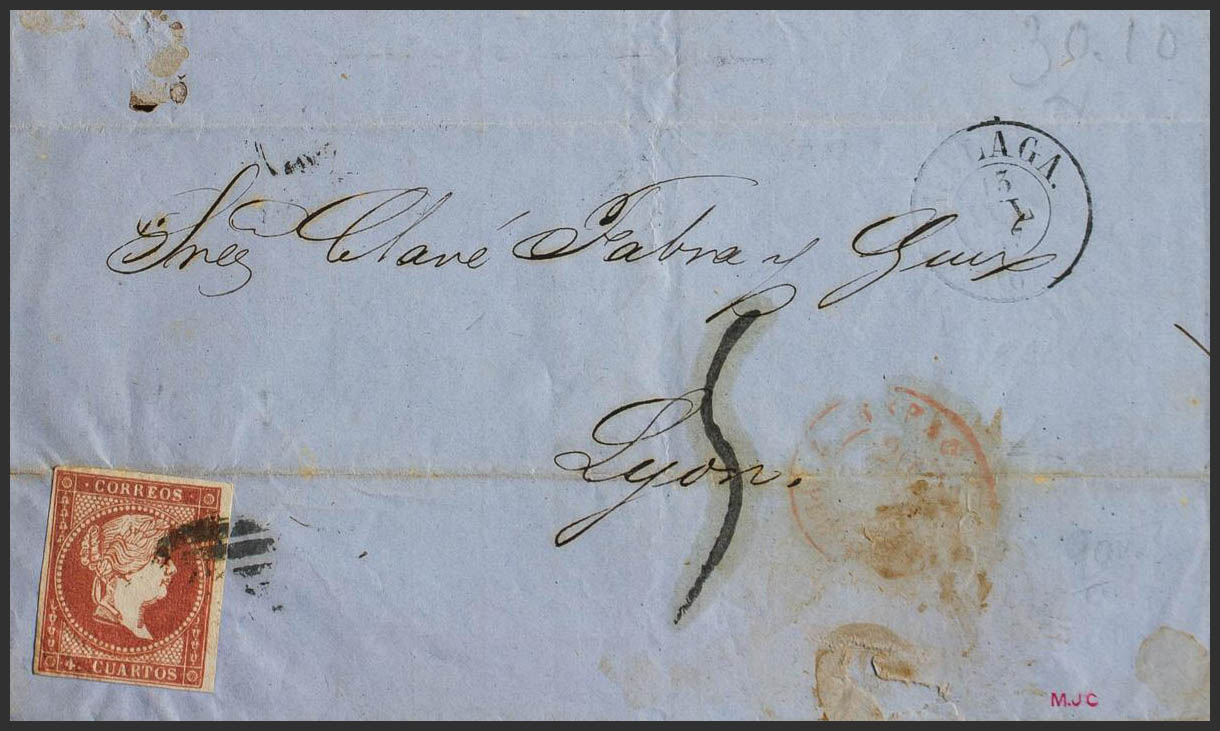 30.10
LAGA.
Sres Clavé Fabra y Guix
Lyon.
5
CORREOS
4 CUARTOS
M.J C